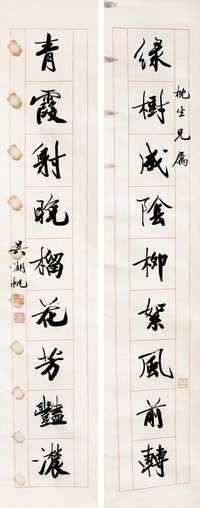 桃生兄属
绿樹成陰柳絮風前轉
青霞射晚榴花芳豔濃
吴湖帆